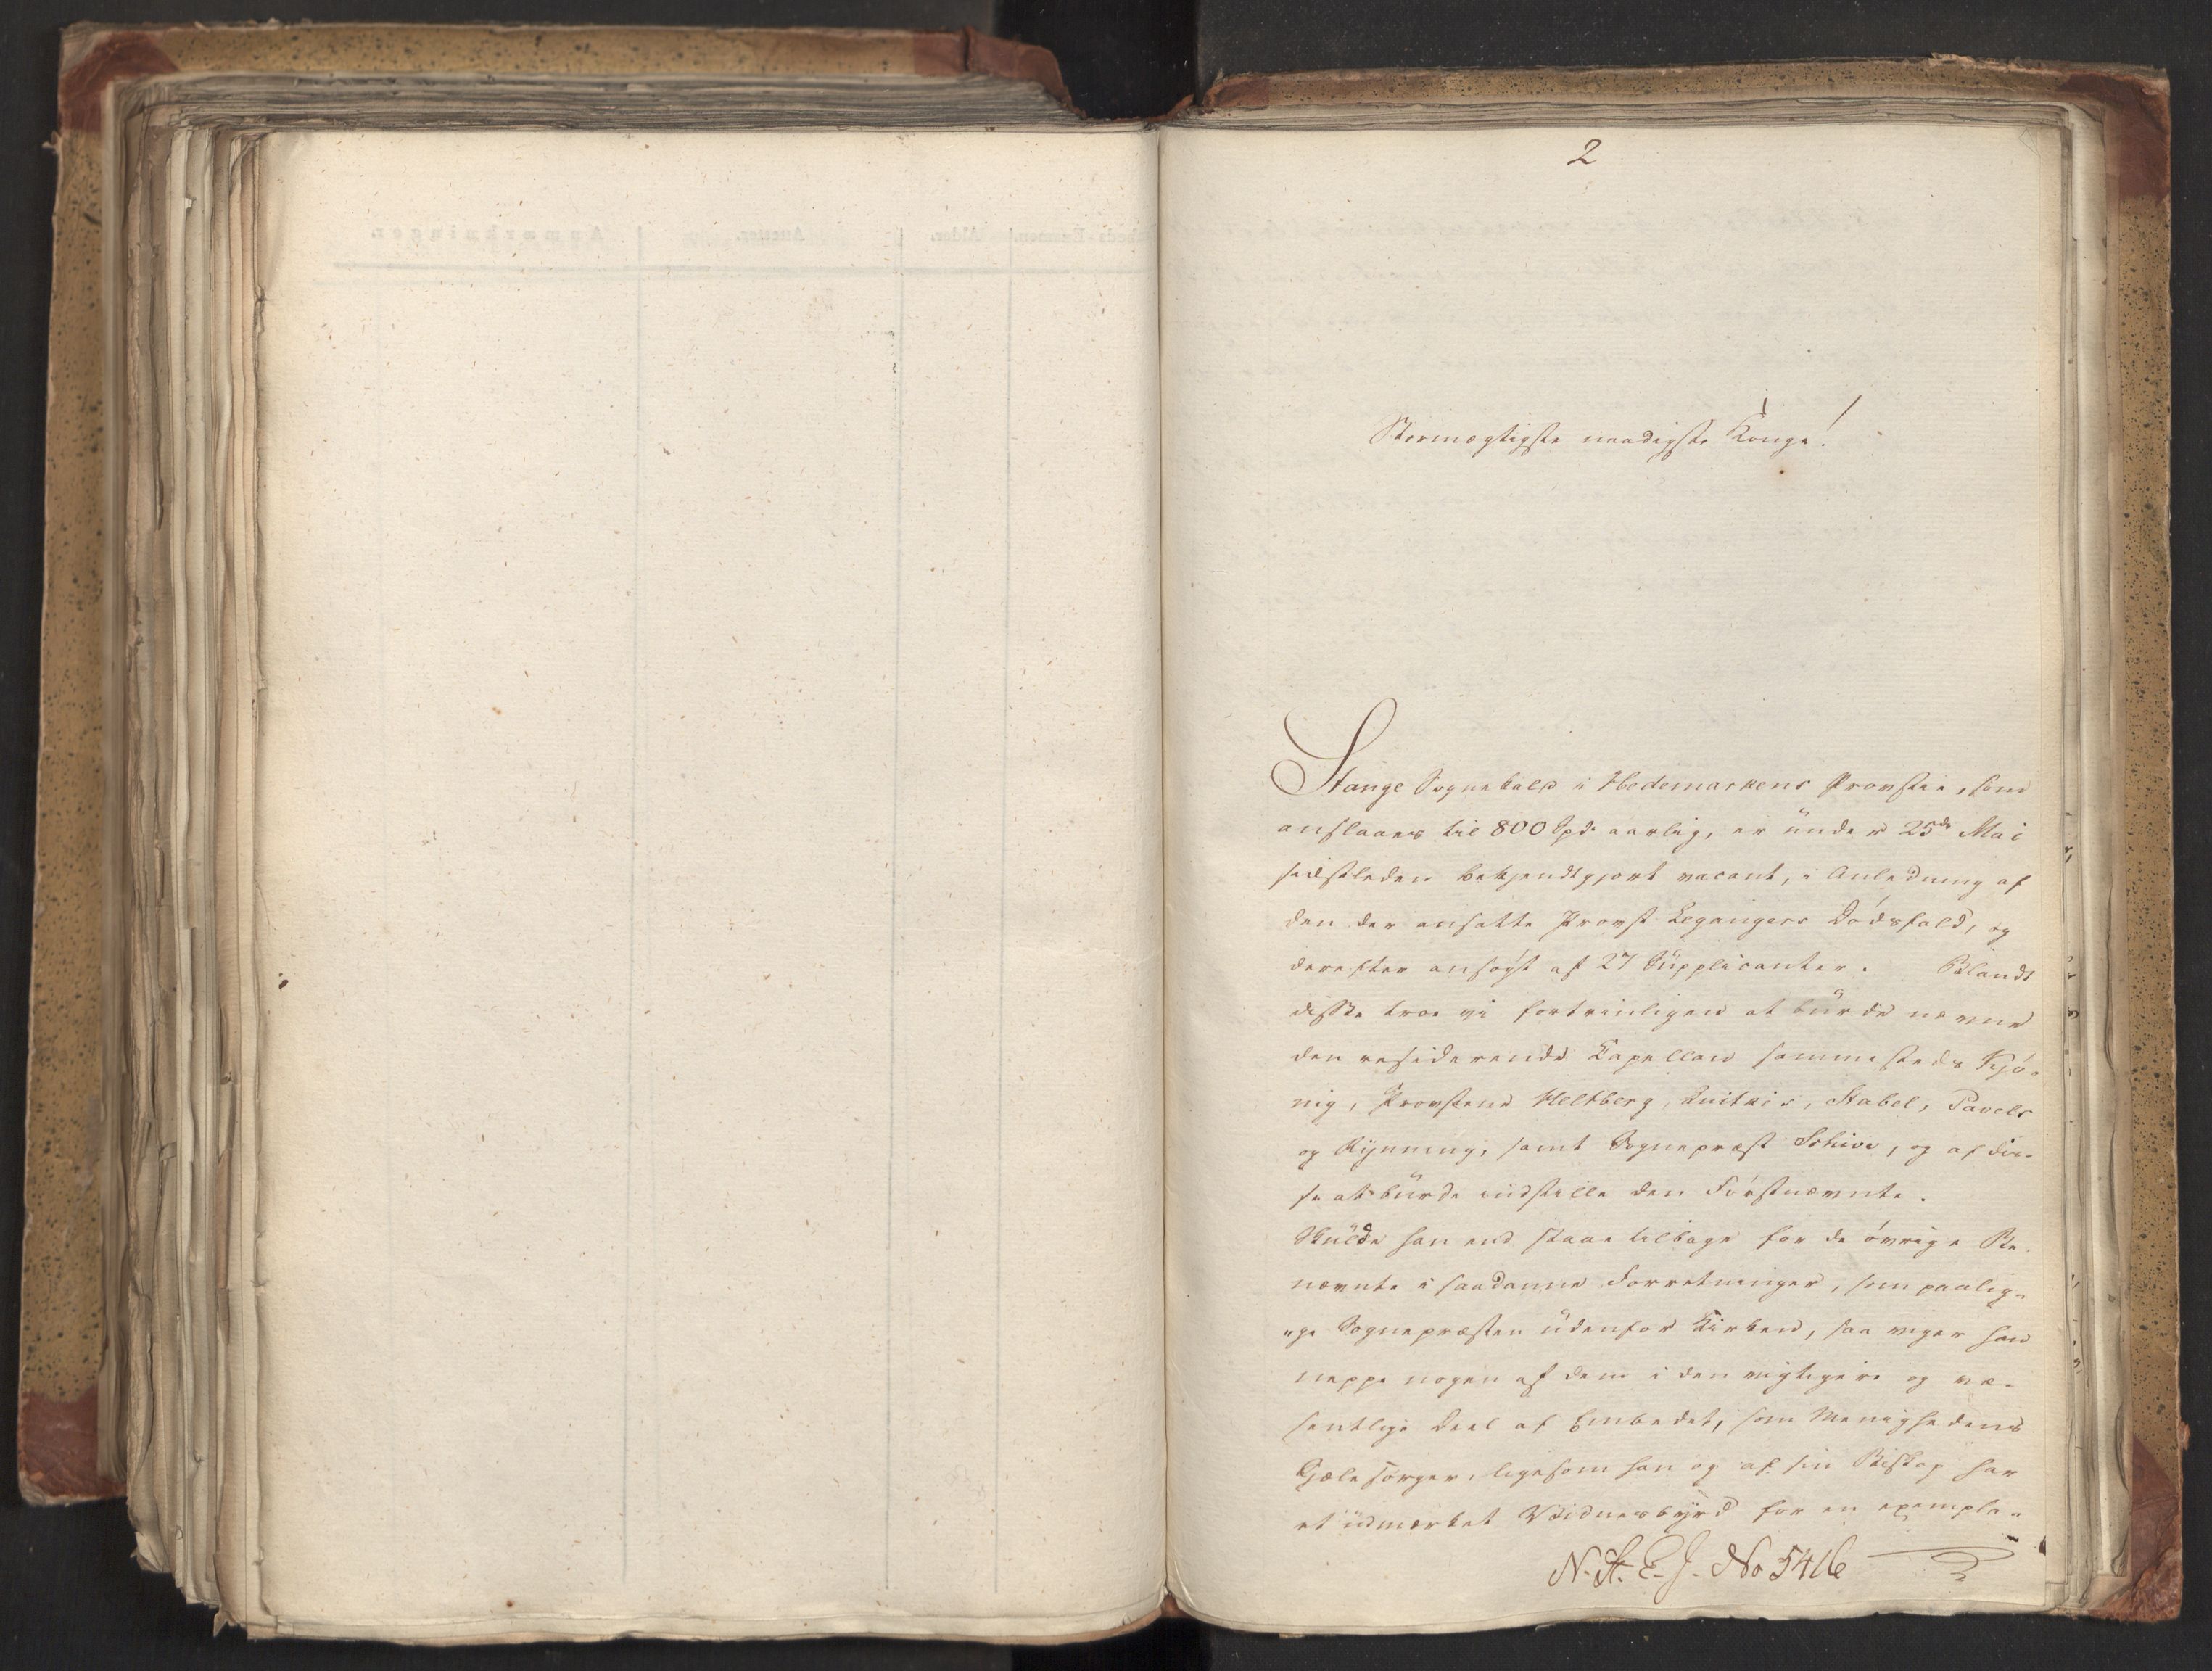 2
Stormægtigste naadigste Konge!
Stange Sognekald i Hedemarkens Provstie, som
anslaaes til 800 Spd. aarlig, er under 25de Mai
sidstleden bekjendtgjort vacant, i Anledning af
den der ansatte Provst Leganger's Dødsfald, og
derefter ansøgt af 27 Supplicanter. Blandt
disse troe vi fortrinligen at burde nævne
den residerende Capellan sammesteds Kjø-
nig, Provsterne Heltberg, Stabel, Pavels
og Rynning, samt Sognepræst Schive, og af dis-
se at burde indstille den Førstnævnte.
Skulde han end staae tilbage for de øvrige Be-
nævnte i saadanne Forretninger, som paalig-
"ge Sognepræsten udenfor Kirken, saa viger han
neppe nogen af dem i den vigtigere og væ-
sentlige Deel af Embedet, som Menighedens
Sjælesørger, ligesom han og af sin Biskop har
et udmærket Vidnesbyrd for en exempla-
N. St. E. J. No 5416